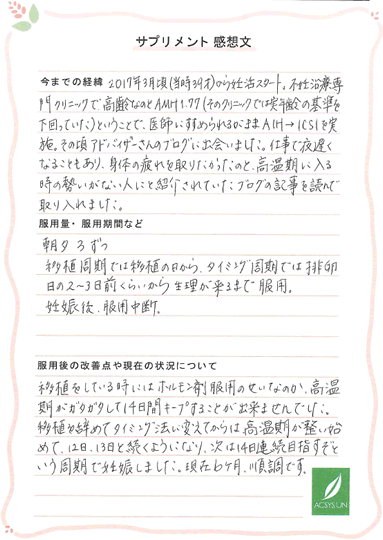 サプリメント 感想文
今までの経緯 2017年3月頃(当時39才)から妊活スタート。不妊治療専
門クリニックで高齢なのとAMH1.77(そのクリニックでは実年齢の基準を
下回っていた)ということで、医師に薦められるがままAIH→ICSIを実
施。その頃アドバイザーさんのブログに出会いました。仕事で夜遅く
なることもあり、身体の疲れを取りたかったのと、高温期に入る
時の勢いがない人にと紹介されていたブログの記事を読んで
取り入れました。
服用量・服用期間など
朝夕3ずつ
移植周期では移植の日から、タイミング周期では排卵
日の2〜3日前くらいから生理が来るまで服用。
妊娠後、服用中断。
服用後の改善点や現在の状況について
移植をしている時にはホルモン剤服用のせいなのか、高温
期がガタガタして14日間キープすることが出来ませんでした。
移植を辞めてタイミング法に変えてからは高温期が整い始
めて、12日、13日と続くようになり、次は14日連続目指すぞと
いう周期で妊娠しました。現在6ヶ月、順調です。
ACSYSUN